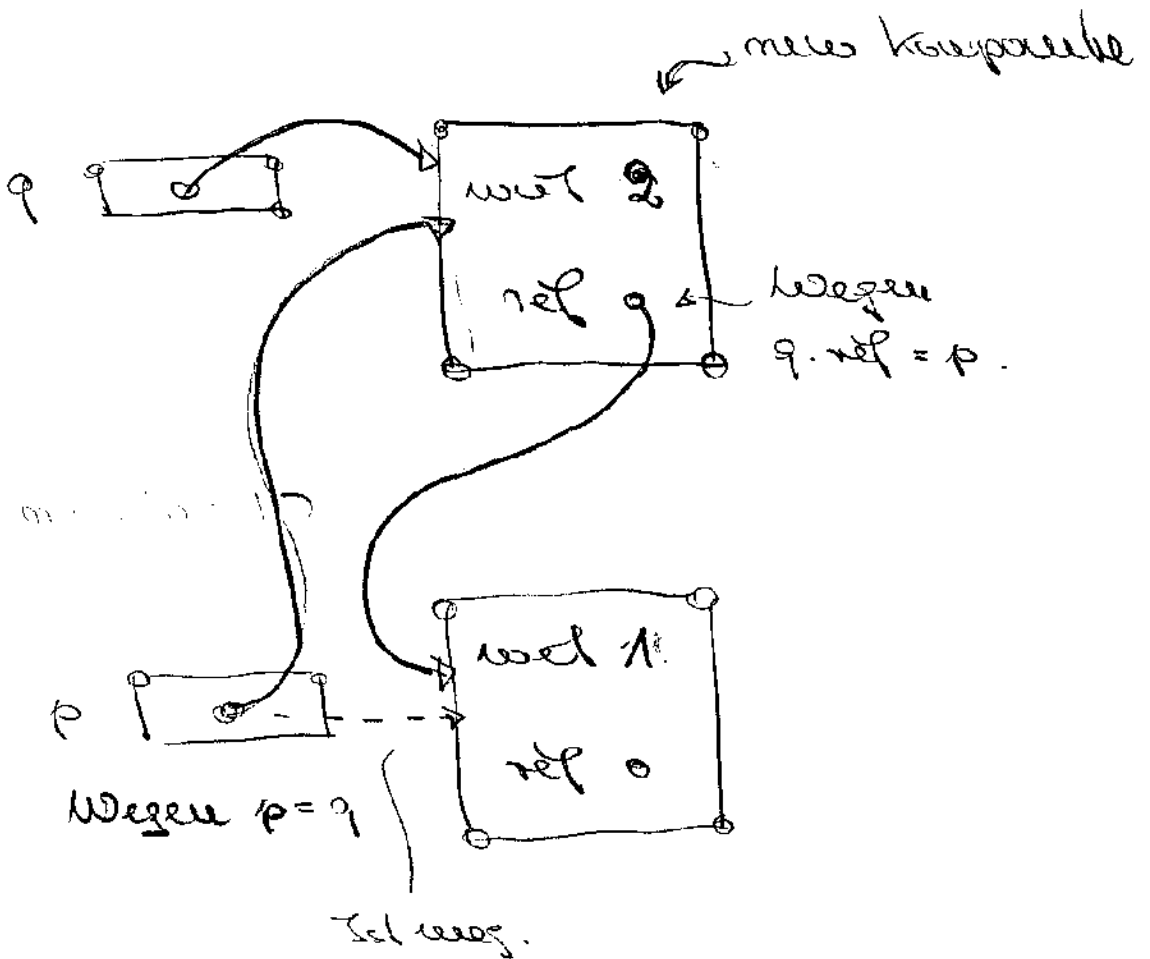 new Komponente
q
wert 2
ref
Wegen
q.ref = p.
wert 1
p
ref
Wegen p = q
Ist weg.